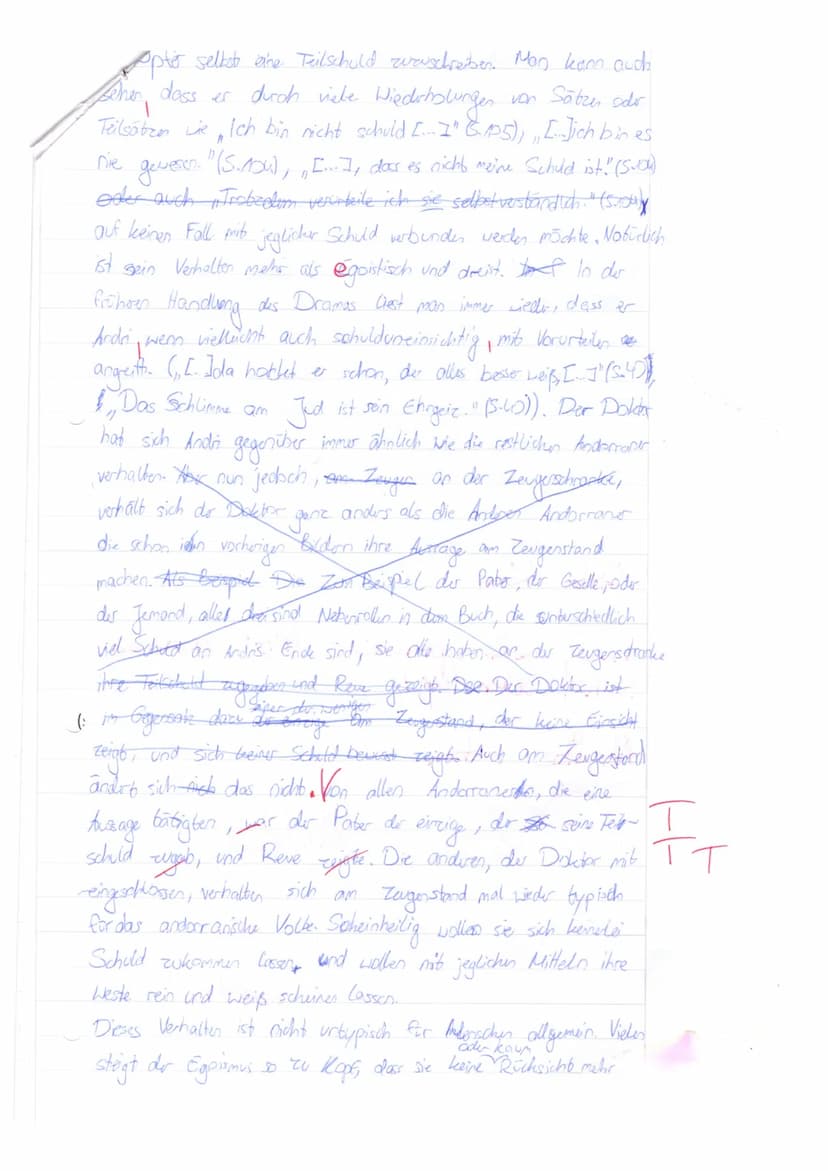 Opfer selbst eine Teilschuld zuzuschreiben. Man kann auch
sehen, dass er durch viele Wiederholungen von Sätzen oder
Teilsätzen wie „Ich bin nicht schuld [...]" (S.105), „[...]ich bin es
nie gewesen."(S.104), „[...], dass es nicht meine Schuld ist."(S.104)
oder auch „Trotzdem verurteile ich sie selbstverständlich." (S.104)
auf keinen Fall mit jeglicher Schuld verbunden werden möchte. Natürlich
ist sein Verhalten mehr als egoistisch und dreist. In der
früheren Handlung des Dramas liest man immer wieder, dass er
Andri, wenn vielleicht auch schulduneinsichtig, mit Vorurteilen
angreift. („[...]da hocket er schon, der alles besser weiß, [...]"(S.40),
„Das Schlimme am Jud ist sein Ehrgeiz." (S.40)). Der Doktor
hat sich Andri gegenüber immer ähnlich wie die restlichen Andorraner
verhalten. Aber nun jedoch, am Zeugen an der Zeugenschranke,
verhält sich der Doktor ganz anders als die Andoer Andorraner
die schon in vorherigen Bildern ihre Aussage am Zeugenstand
machen. Als Beispiel Zum Beispiel der Pater, der Geselle, oder
der Jemand, alle drei sind Nebenrollen in dem Buch, die unterschiedlich
viel Schuld an Andris Ende sind, sie alle haben an der Zeugenschranke
ihre Teilschuld zugegeben und Reue gezeigt. Der Doktor ist
im Gegensatz dazu einer der wenigen der einzige am Zeugenstand, der keine Einsicht
zeigt, und sich keiner Schuld bewusst zeigt. Auch am Zeugenstand
ändert sich das nicht. Von allen Andorranern, die eine
Aussage tätigten, war der Pater der einzige, der seine Teil-
schuld zugab, und Reue zeigte. Die anderen, der Doktor mit
eingeschlossen, verhalten sich am Zeugenstand mal wieder typisch
für das andorranische Volke. Scheinheilig wollen sie sich keinerlei
Schuld zukommen lassen, und wollen mit jeglichen Mitteln ihre
Weste rein und weiß scheinen lassen.
Dieses Verhalten ist nicht untypisch für Menschen allgemein. Vielen
steigt der Egoismus so zu Kopf, dass sie keine oder kaum Rücksicht mehr
T
T T